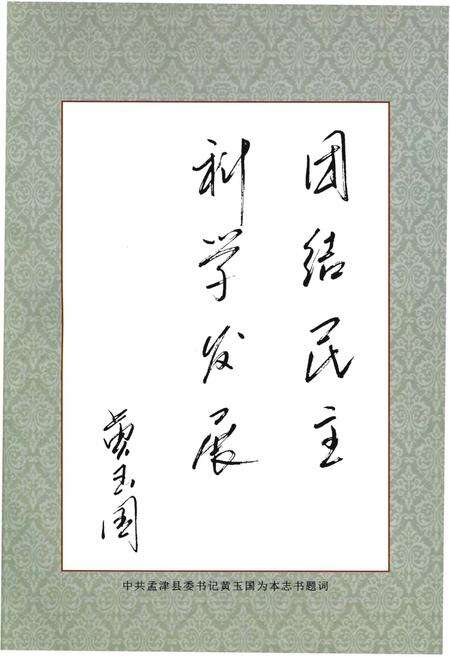 团结民主
科学发展
黄玉国
中共孟津县委书记黄玉国为本志书题词